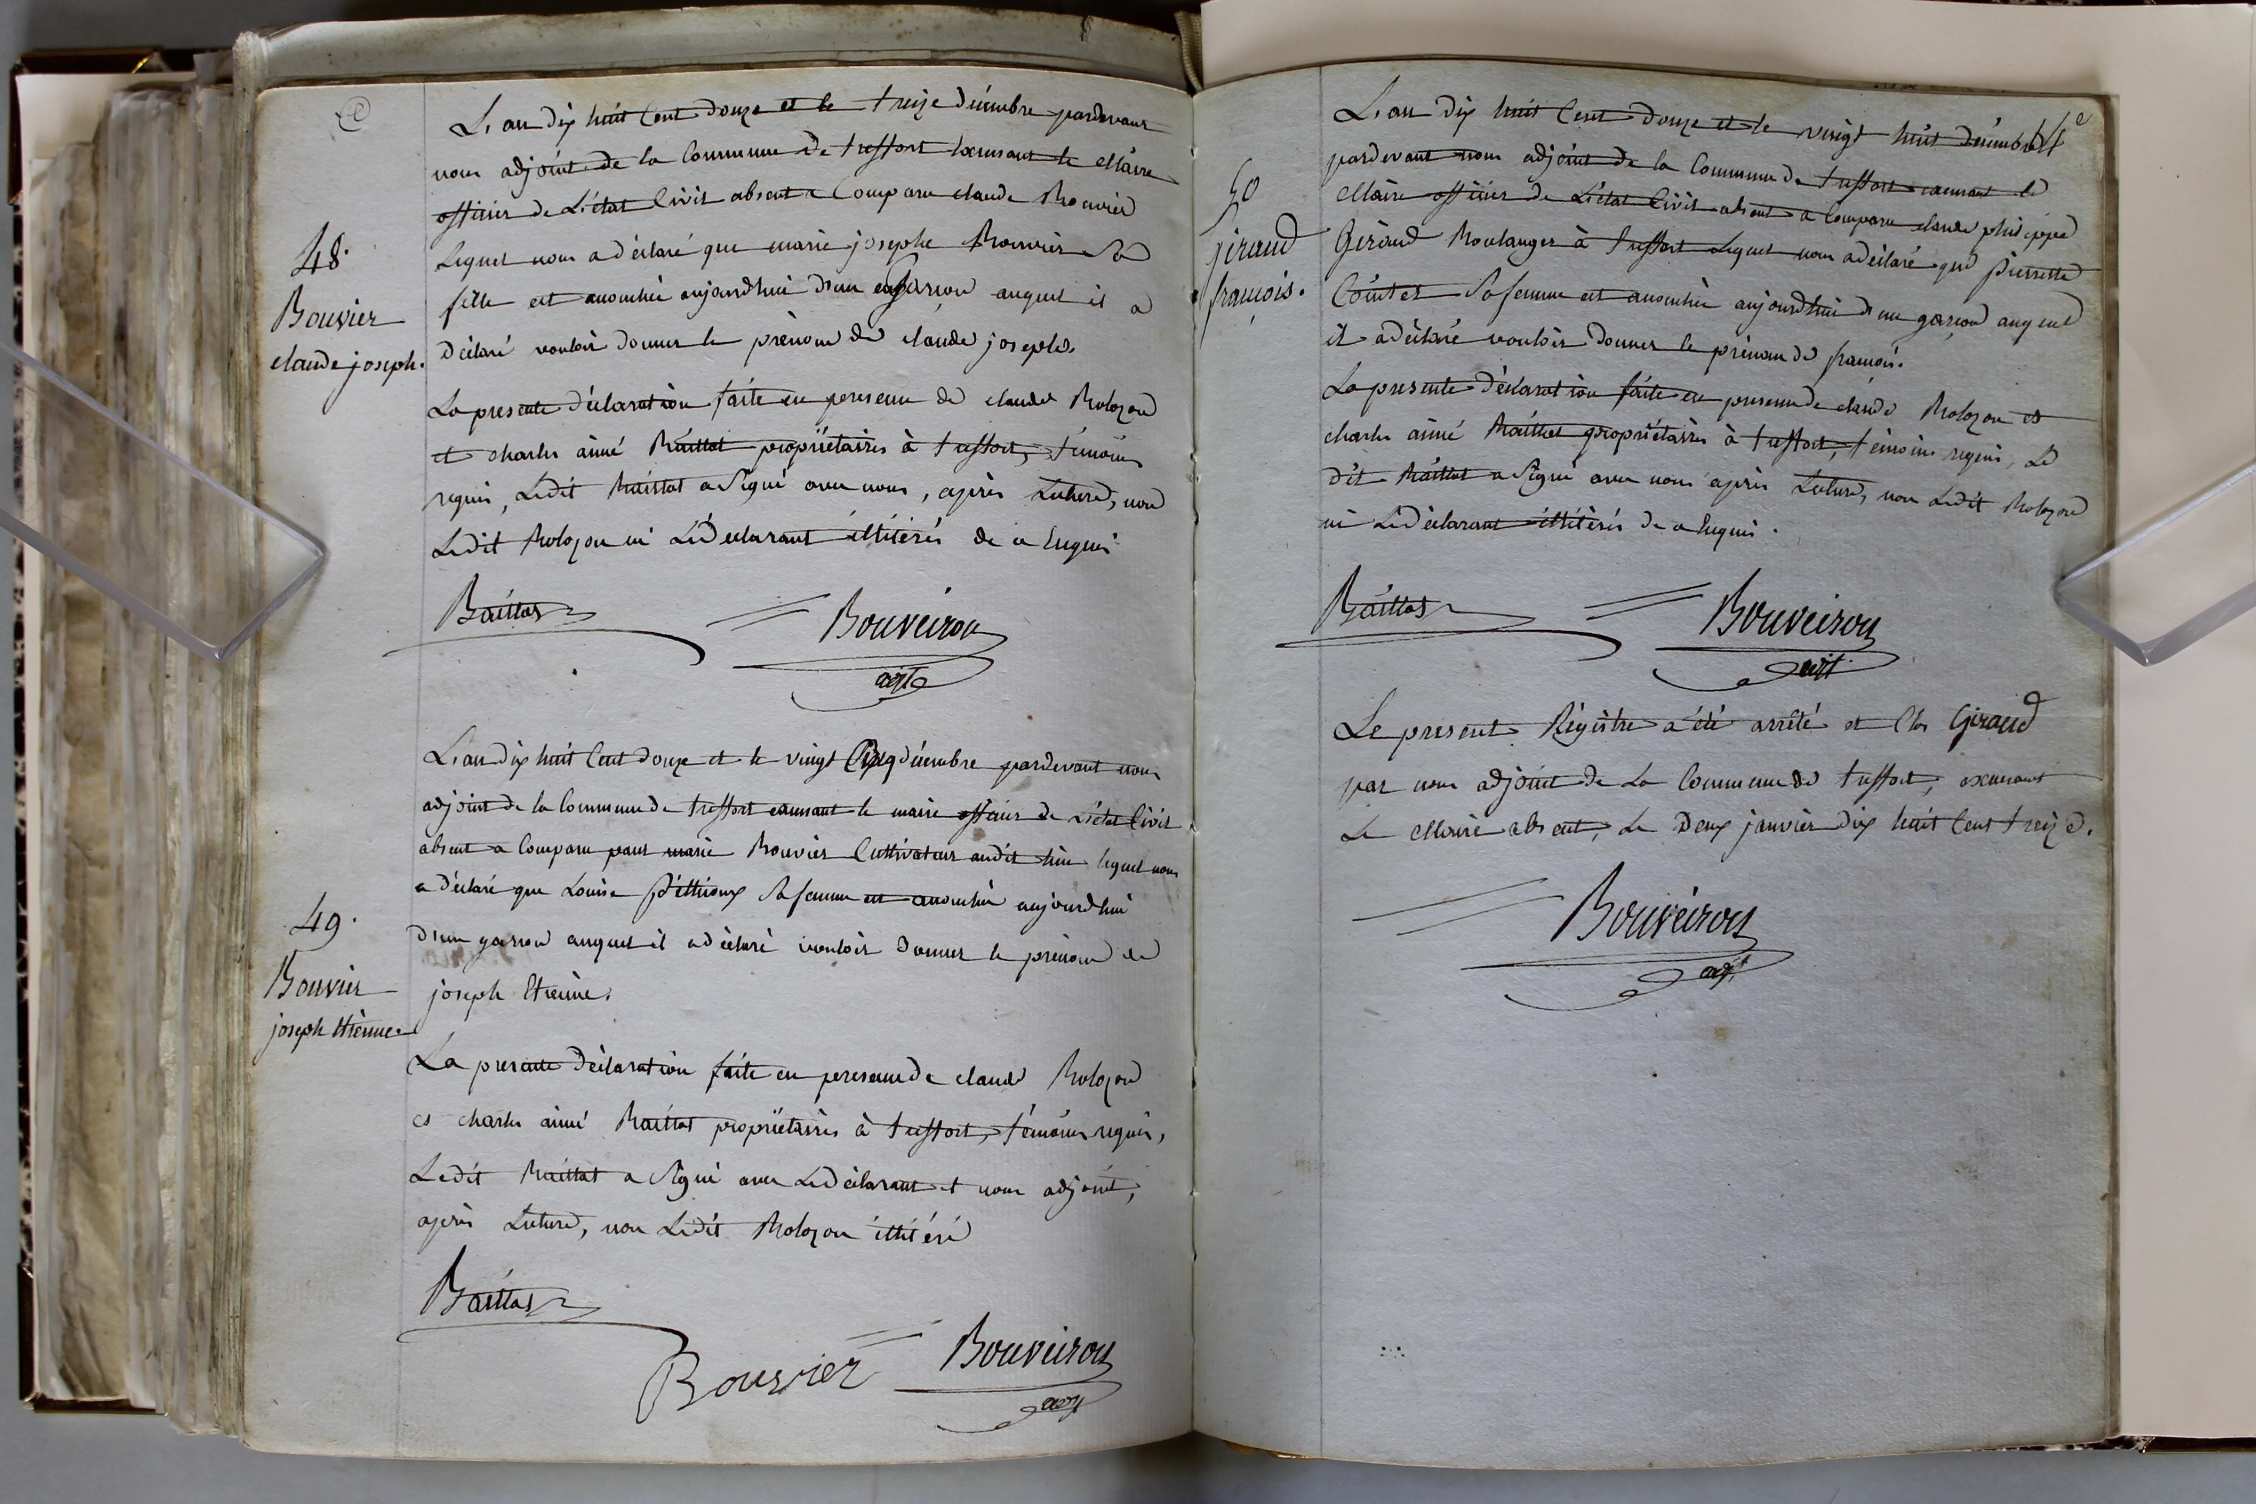 48.
Bouvier
claude joseph.
L'an dix huit Cent douze et le treize décembre pardevant
nous adjoint de la Commune de treffort exerseant le Maire
officier de L'état Civil absent a Comparu claude Bouvier
Lequel nous a déclaré que marie josephe Bouvier Sa
fille est accouchée aujourdhui d'un garçon auquel il a
déclaré vouloir donner le prénom de claude joseph.
La presente déclaration faite en presence de claude Bolozon
et charles aimé Baillat propriétaires à treffort, témoins
requis, Ledit Baillat a Signé avec nous, après Lecture, non
Ledit Bolozon ni Le Déclarant illitérés de ce Enquis
Baillat
Bouveiron
adjt
49.
Bouvier
joseph Etienne.
L'an dix huit Cent douze et le vingt Cinq décembre pardevant nous
adjoint de la Commune de treffort exersant le maire officier de L'état Civil
absent a Comparu pour marie Bouvier Cultivateur audit lieu lequel nous
a déclaré que Louise Sa femme est accouchée aujourdhui
d'un garson auquel il a déclaré vouloir donner le prénom de
joseph Etienne.
La presente Déclaration faite en presence de claude Bolozon
et charles aimé Baillat propriétaires à treffort, témoins requis,
Ledit Baillat a Signé avec Le Déclarant et nous adjoint,
après Lecture, non Ledit Bolozon illitéré
Baillat
Bouvier
Bouveiron
adjt
50
Giraud
françois.
L'an dix huit Cent douze et le vingt huit décembre
pardevant nous adjoint de la Commune de treffort exersant le
Maire officier de L'état Civil absent a Comparu claude philippe
Giraud Boulanger à treffort Lequel nous a déclaré que pierrette
Cointet Sa femme est accouchée aujourdhui d'un garçon auquel
il a déclaré vouloir donner le prénom de françois.
La presente déclaration faite en presence de claude Bolozon et
charles aimé Baillat propriétaires à treffort, témoins requis, Le
dit Baillat a Signé avec nous après Lecture, non Ledit Bolozon
ni Le déclarant illitérés de ce Enquis.
Baillat
Bouveiron
adjt
Le present Régistre a été arrêté et Clos Giraud
par nous adjoint de La Commune de treffort, exersant
Le Maire absent, Le Deux janvier dix huit Cent treize.
Bouveiron
adjt